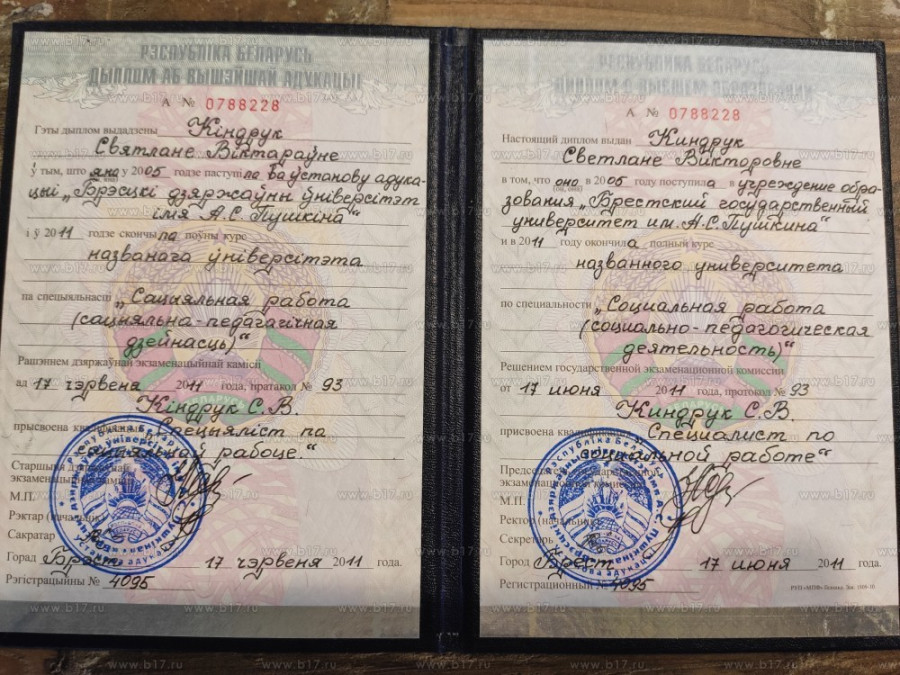 РЭСПУБЛІКА БЕЛАРУСЬ
ДЫПЛОМ АБ ВЫШЭЙШАЙ АДУКАЦЫІ
А № 0788228
Гэты дыплом выдадзены Кіндрук
Святлане Віктараўне
ў тым, што яна ў 2005 годзе паступіла ва ўстанову адука-
цыі „Брэсцкі дзяржаўны ўніверсітэт
імя А.С. Пушкіна“
і ў 2011 годзе скончыла поўны курс
названага ўніверсітэта
па спецыяльнасці „Сацыяльная работа
(сацыяльна-педагагічная
дзейнасць)“
Рашэннем дзяржаўнай экзаменацыйнай камісіі
ад 17 чэрвеня 2011 года, пратакол № 93
Кіндрук С.В.
прысвоена „Спецыяліст па
сацыяльнай рабоце.“
Старшыня
экзаменацыйнай
М.П.
Рэктар
Сакратар
Горад Брэст 17 чэрвеня 2011 года.
Рэгістрацыйны № 4095
РЕСПУБЛИКА БЕЛАРУСЬ
ДИПЛОМ О ВЫСШЕМ ОБРАЗОВАНИИ
А № 0788228
Настоящий диплом выдан Киндрук
Светлане Викторовне
в том, что она в 2005 году поступила в учреждение обра-
зования „Брестский государственный
университет им. А.С. Пушкина“
и в 2011 году окончила полный курс
названного университета
по специальности „Социальная работа
(социально-педагогическая
деятельность)“
Решением государственной экзаменационной комиссии
от 17 июня 2011 года, протокол № 93
Киндрук С.В.
присвоена „Специалист по
социальной работе“
М.П.
Ректор (начальник)
Секретарь
Город Брест 17 июня 2011 года.
Регистрационный № 4095
www.b17.ru